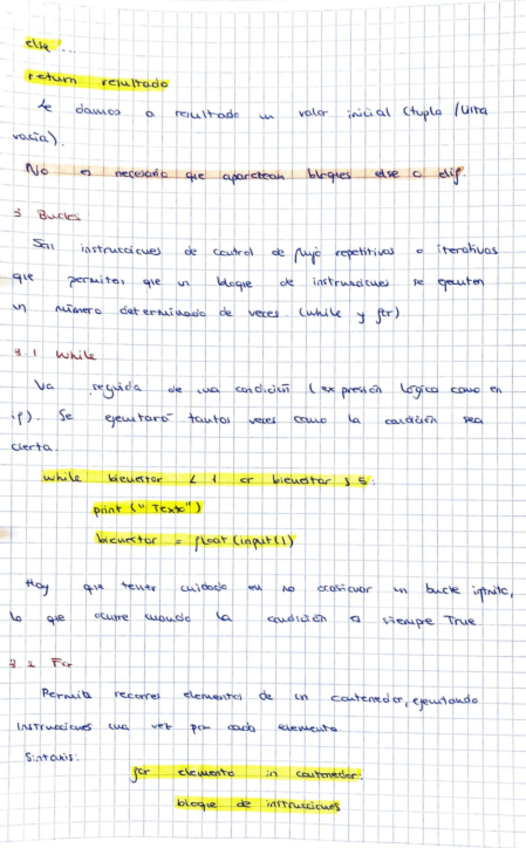 else ...
return resultado
Le damos a resultado un valor inicial (tupla / lista
vacía).
No es necesario que aparezcan bloques else o elif.
3 Bucles
Son instrucciones de control de flujo repetitivas o iterativas
que permiten que un bloque de instrucciones se ejecuten
un número determinado de veces. (while y for)
3.1 While
Va seguida de una condición (expresión lógica como en
if). Se ejecutará tantas veces como la condición sea
cierta.
while bienestar < 1 or bienestar > 5:
print ("Texto")
bienestar = float (input())
Hay que tener cuidado en no ocasionar un bucle infinito,
lo que ocurre cuando la condición es siempre True.
3.2 For
Permite recorrer elementos de un contenedor, ejecutando
instrucciones una vez por cada elemento.
Sintaxis:
for elemento in contenedor:
bloque de instrucciones